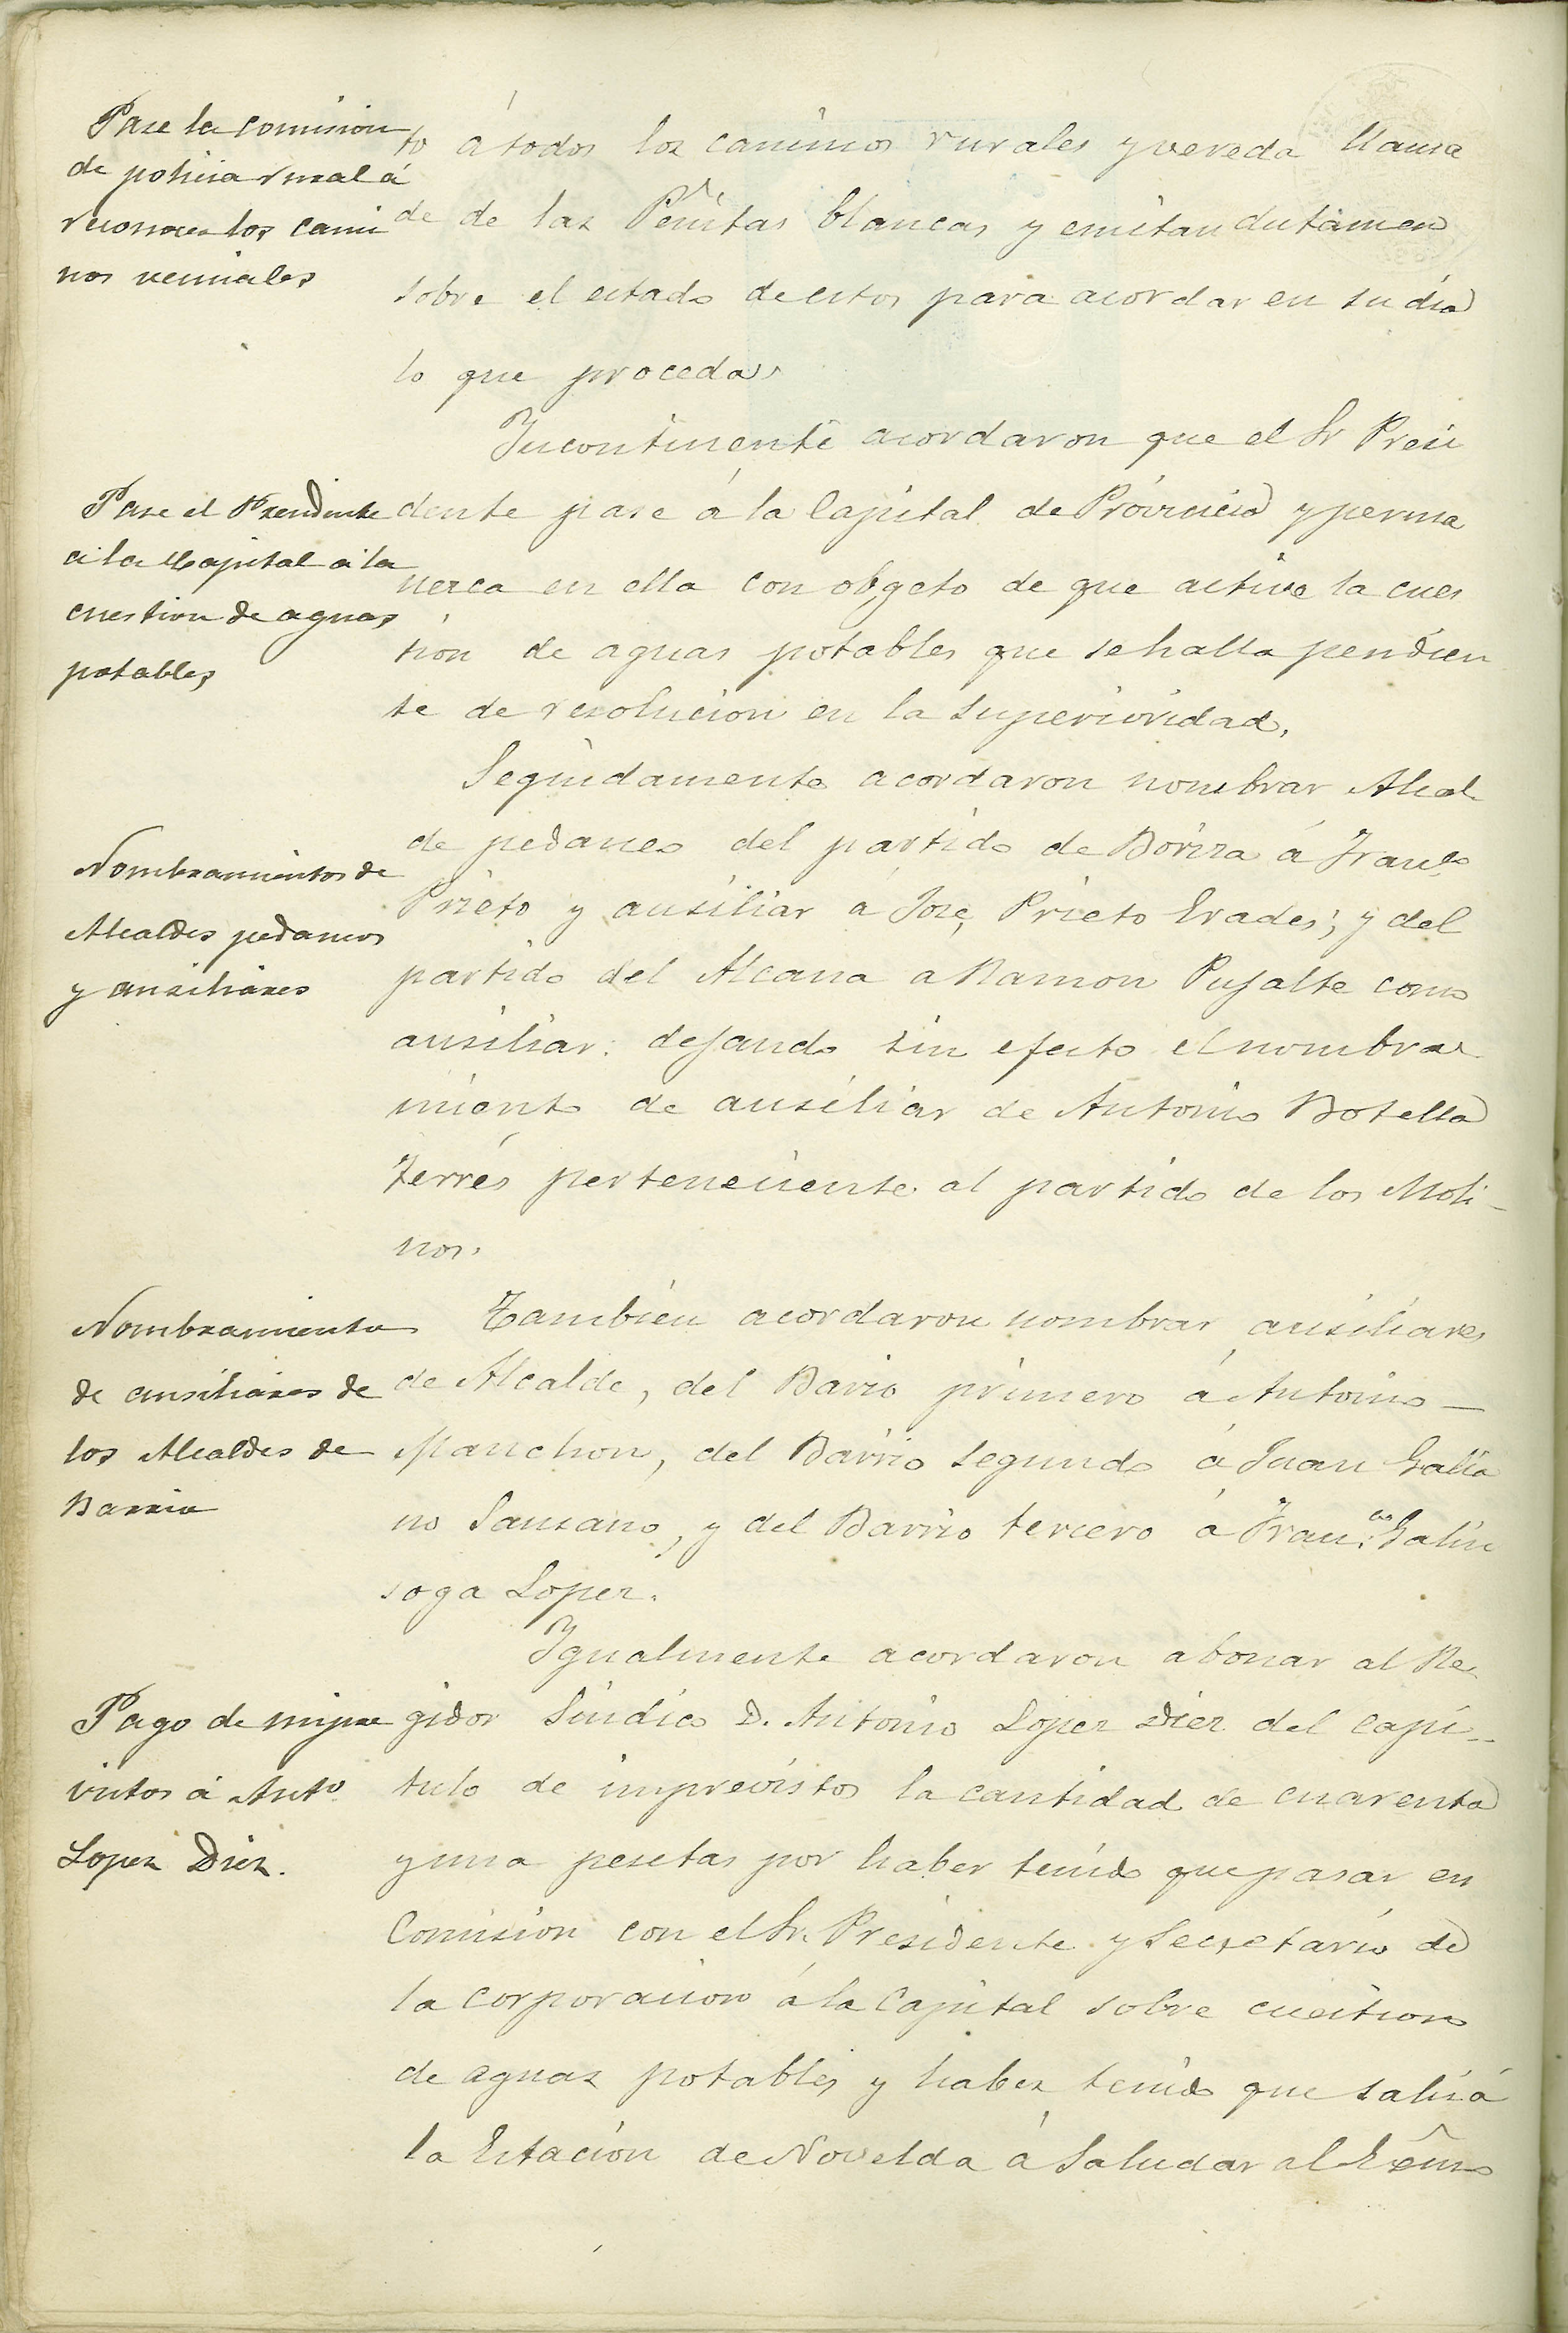 Pase la comision
de policia rural á
reconocer los cami
nos vecinales
to á todos los caminos rurales y vereda llama
da de las Peñitas blancas y emitan dictamen
sobre el estado de estos para acordar en su dia
lo que proceda.
Incontinente acordaron que el Sr Presi
Pase el Presidente
á la Capital á la
cuestion de aguas
potables
dente pase á la Capital de Provincia y perma
nezca en ella con objeto de que active la cues
tion de aguas potables que se halla pendien
te de resolucion en la superioridad.
Seguidamente acordaron nombrar Alcal
Nombramientos de
Alcaldes pedaneos
y ausiliares
de pedaneo del partido de Boriza á Franco
Prieto y ausiliar á José Prieto Erades; y del
partido del Alcana a Ramon Pujalte como
ausiliar: dejando sin efecto el nombra
miento de ausiliar de Antonio Botella
Terrés perteneciente al partido de los Moli-
nos.
Nombramiento
de ausiliares de
los Alcaldes de
Barrio
Tambien acordaron nombrar ausiliares
de Alcalde, del Bario primero á Antonio
Manchon, del Barrio segundo á Juan Galia
no Sansano, y del Barrio tercero á Franco Galin
soga Lopez.
Igualmente acordaron abonar al Re
Pago de impre
vistos á Anto
Lopez Diez.
gidor Sindico D. Antonio Lopez Diez del capi-
tulo de imprevistos la cantidad de cuarenta
y una pesetas por haber tenido que pasar en
Comision con el Sr. Presidente y Secretario de
la corporacion á la Capital sobre cuestion
de aguas potables y haber tenido que salir á
la Estacion de Novelda á saludar al Exmo